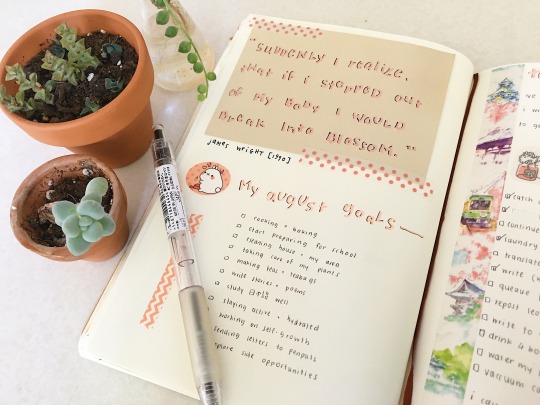 "SUDDENLY I realize,
that if i stepped out
of my Body I would
Break into Blossom."
james wright [1990]
My august goals
□ cooking + baking
□ start preparing for school
□ cleaning house + my area
□ taking care of my plants
□ making teas + teabags
□ write stories + poems
□ study 日本語 well
□ staying active + hydrated
working on self-growth
sending letters to penpals
explore side opportunities
we
to go
catch
continue
laundry
translat
write (
queue
repost
write to
drink 8
water my
vacuum
i